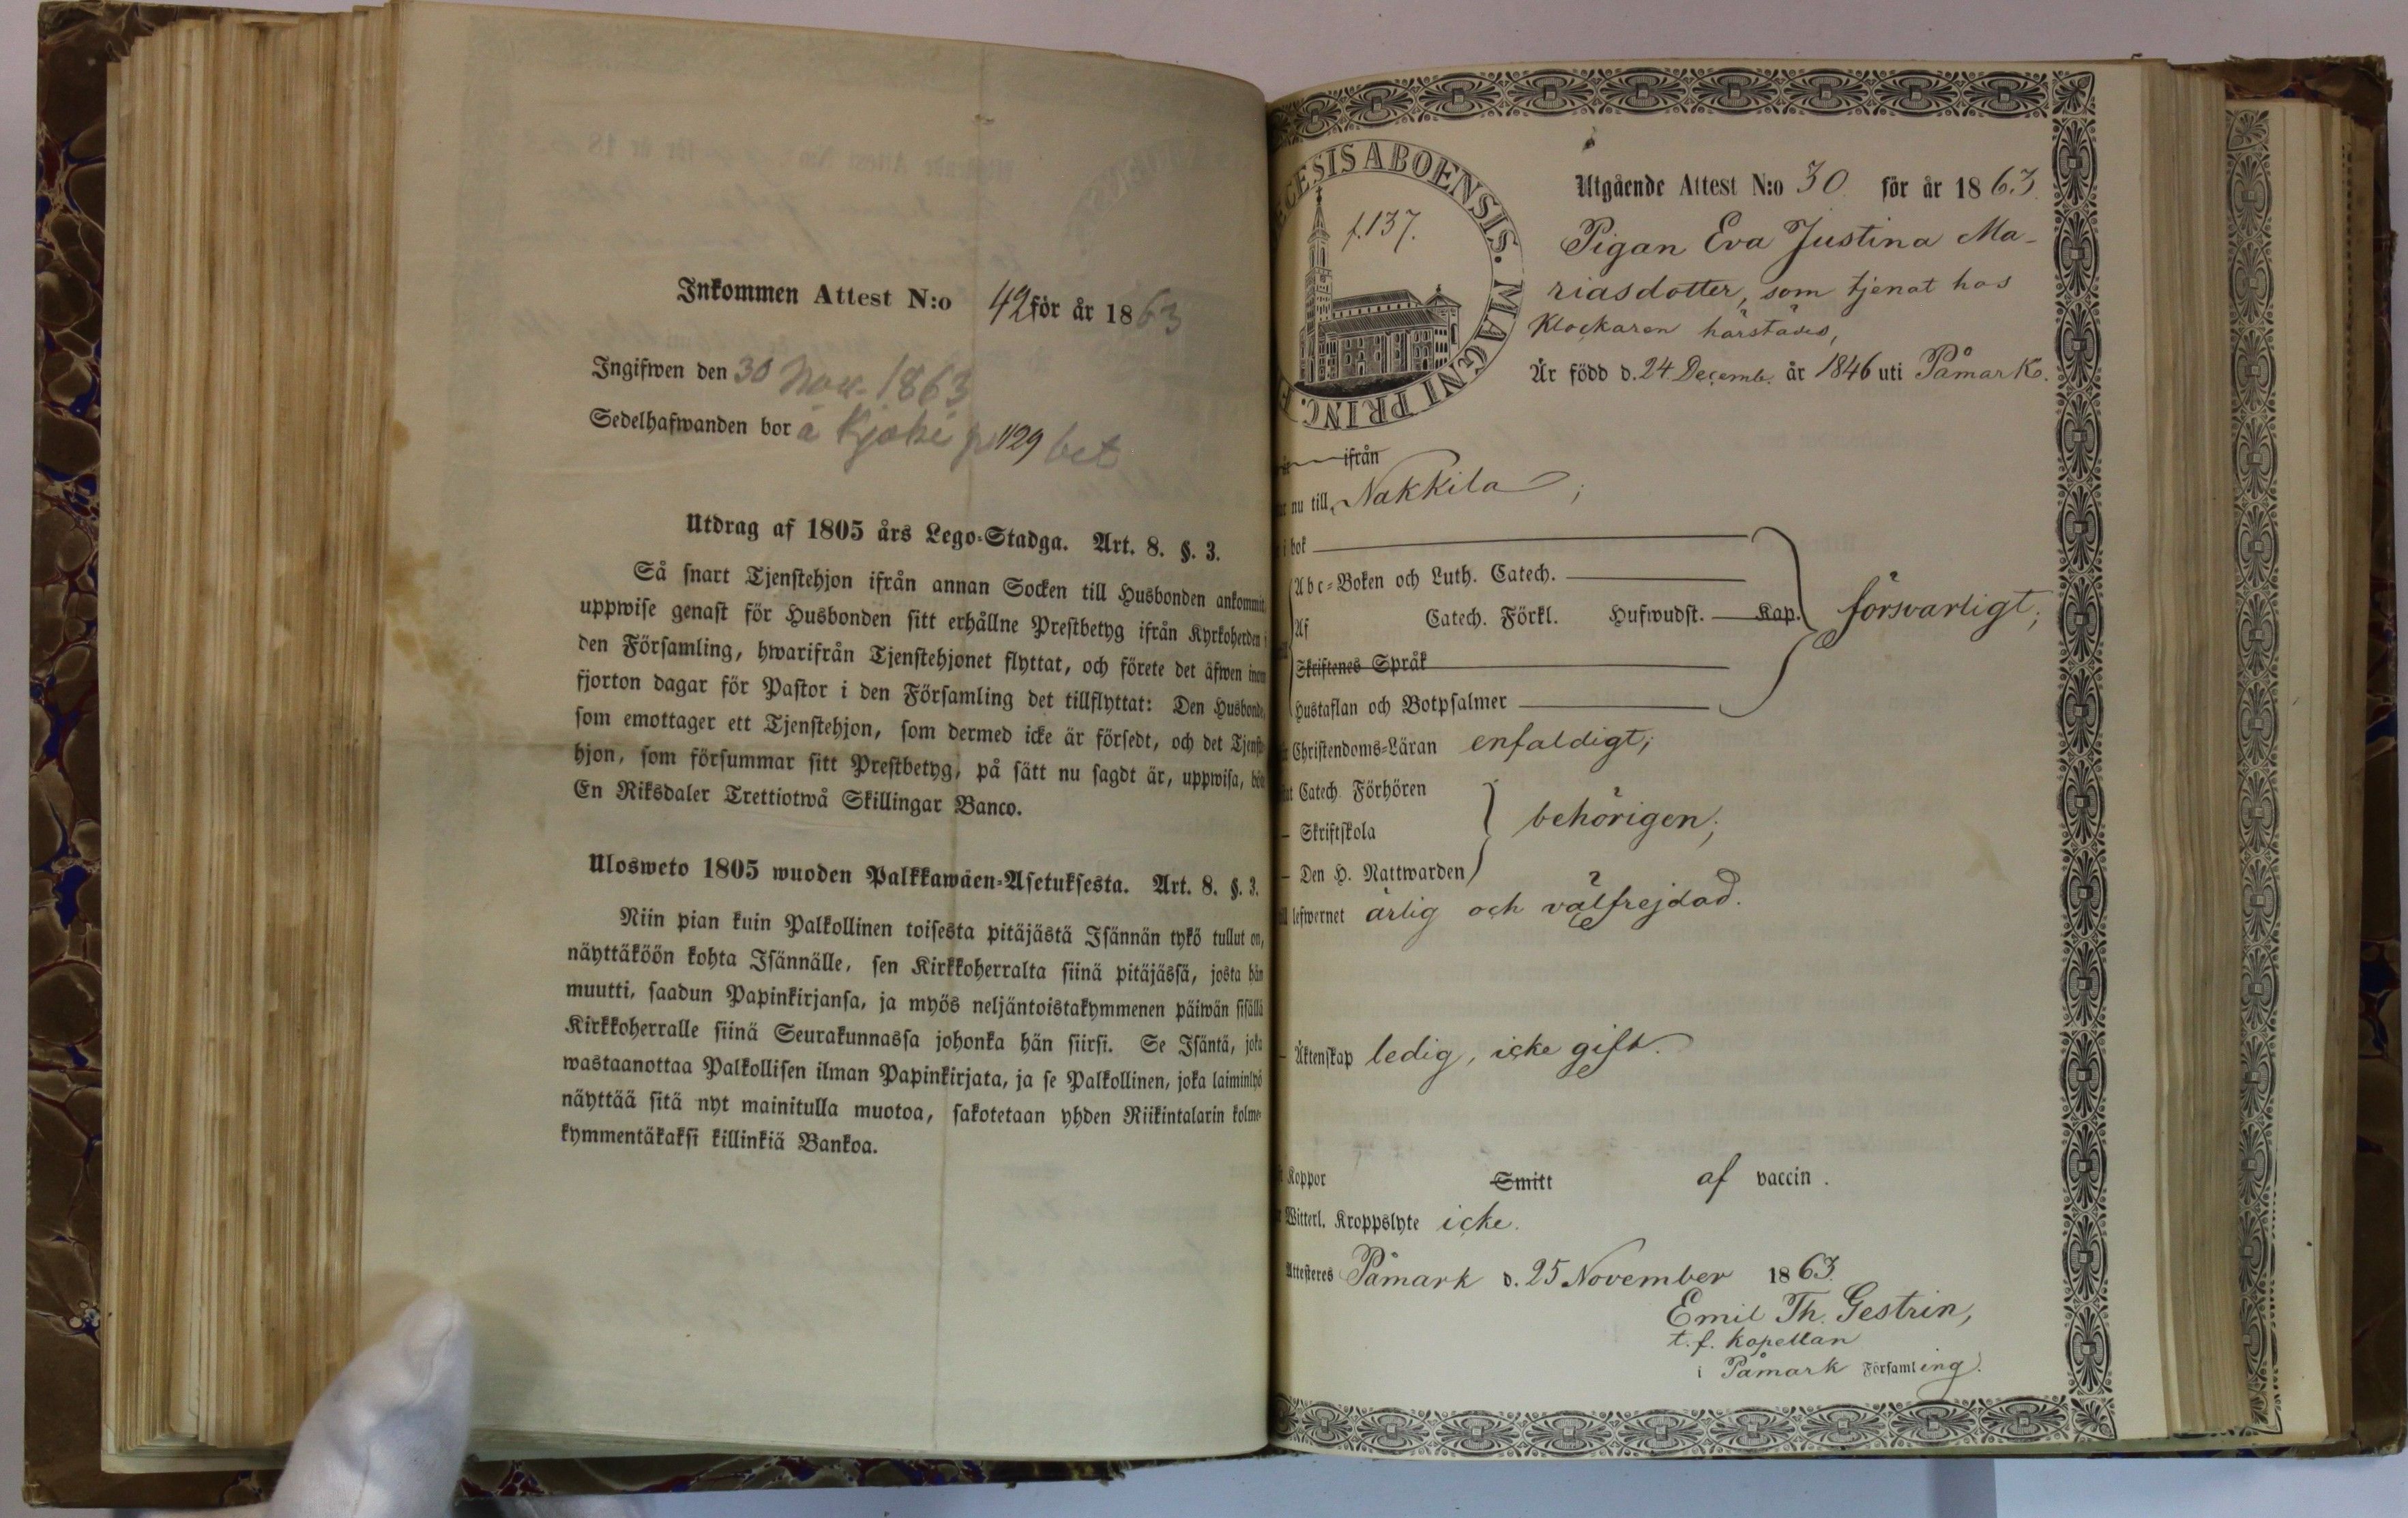 Inkommen Attest N:o 42 för år 1863
Ingifwen den 30 Nov. 1863
Sedelhafwanden bor å Kjoki p 129 bet
Utdrag af 1805 års Lego-Stadga. Art. 8. §. 3.
Så snart Tjenstehjon ifrån annan Socken till Husbonden ankommit
uppwise genast för Husbonden sitt erhållne Prestbetyg ifrån Kyrkoherden i
den Församling, hwarifrån Tjenstehjonet flyttat, och förete det äfwen inom
fjorton dagar för Pastor i den Församling det tillflyttat: Den Husbonde,
som emottager ett Tjenstehjon, som dermed icke är försedt, och det Tjenste-
hjon, som försummar sitt Prestbetyg, på sätt nu sagdt är, uppwisa, böte
En Riksdaler Trettiotwå Skillingar Banco.
Ulosweto 1805 wuoden Palkkawäen-Asetuksesta. Art. 8. §. 3.
Niin pian kuin Palkollinen toisesta pitäjästä Isännän tykö tullut on,
näyttäköön kohta Isännälle, sen Kirkkoherralta siinä pitäjässä, josta hän
muutti, saadun Papinkirjansa, ja myös neljäntoistakymmenen päiwän sisällä
Kirkkoherralle siinä Seurakunnassa johonka hän siirsi. Se Isäntä, joka
wastaanottaa Palkollisen ilman Papinkirjata, ja se Palkollinen, joka laiminlyö
näyttää sitä nyt mainitulla muotoa, sakotetaan yhden Riikintalarin kolme-
kymmentäkaksi killinkiä Bankoa.
CESIS ABOENSIS. MAGNI PRINC. F
f.137.
Utgående Attest N:o 30 för år 1863.
Pigan Eva Justina Ma-
riasdotter, som tjenat hos
Klockaren härstädes,
Är född d. 24 Decemb. år 1846 uti Påmark.
ifrån
nu till Nakkila;
i bok
Abc-Boken och Luth. Catech.
Af Catech. Förkl. Hufwudst. Kap. försvarligt;
Skriftenes Språk
Hustaflan och Botpsalmer
Christendoms-Läran enfaldigt;
Catech. Förhören
– Skriftskola behörigen;
– Den H. Nattwarden
lefwernet ärlig och välfrejdad.
– Äktenskap ledig, icke gift.
Koppor Smitt af vaccin.
Witterl. Kroppslyte icke.
Attesteres Påmark d. 25 November 1863.
Emil Th. Gestrin,
t. f. Kapellan
i Påmark Församling.